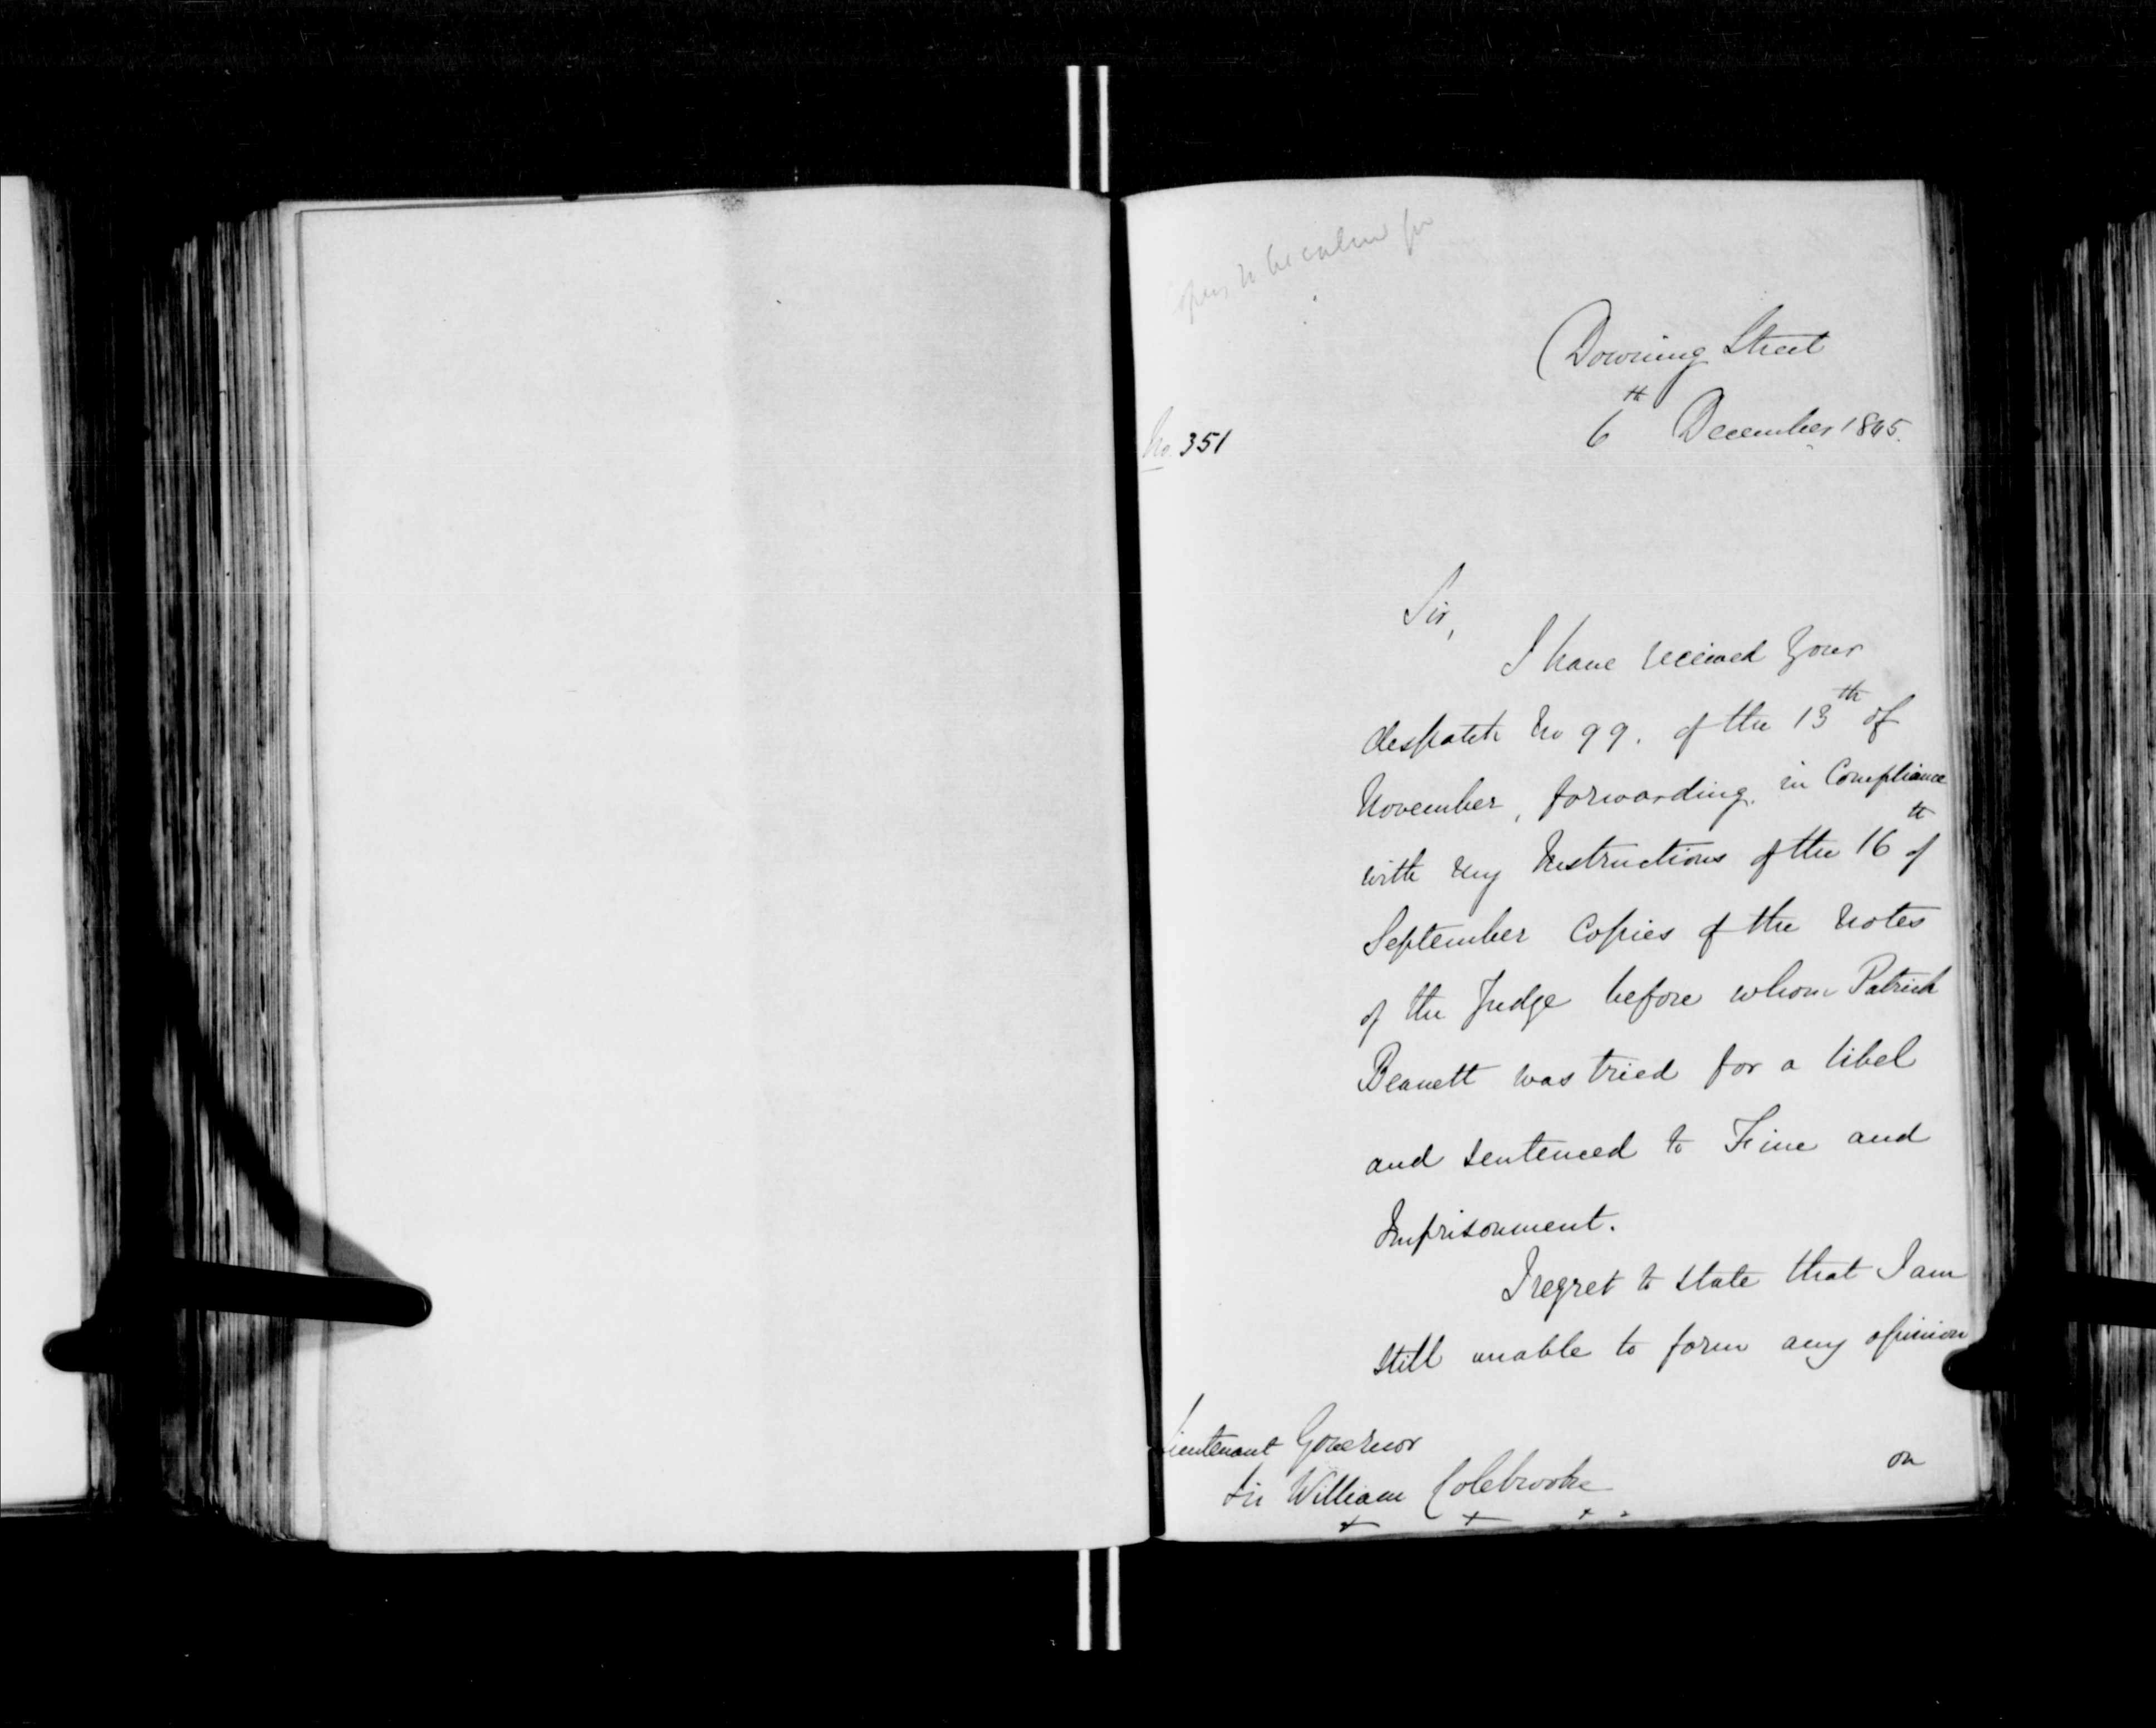 Copies to be called for
Downing Street
6th December 1845.
No. 351
Sir,
I have received Your
despatch No 99. of the 13th of
November, forwarding, in Compliance
with my Instructions of the 16th of
September Copies of the Notes
of the Judge before whom Patrick
Bennett was tried for a libel
and sentenced to Fine and
Imprisonment.
I regret to state that I am
still unable to form any opinion
on
Lieutenant Governor
Sir William Colebrooke